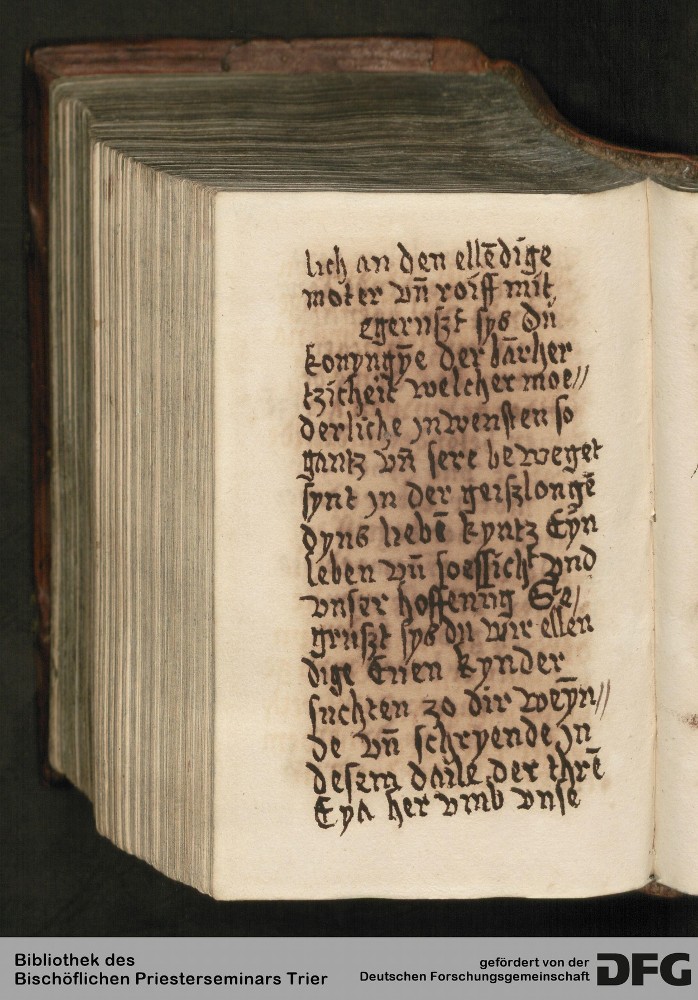 lich an den ellēdige
moter vn̄ roiff mit
egeruszt sys du
konyngȳe der bārher
tzicheit welcher moe//
derliche jnwensten so
gantz vn̄ sere beweget
synt jn der geiszlongē
dyns liebē kyntz Eyn
leben vn̄ soessicht vnd
vnser hoffenūg Ge/
gruszt sys du wir ellen
dige Euen kynder
suchten zo dir weȳn//
de vn̄ schryende jn
desem daile der thrē
Eya her vmb vnse
Bibliothek des
Bischöflichen Priesterseminars Trier
gefördert von der
Deutschen Forschungsgemeinschaft
DFG